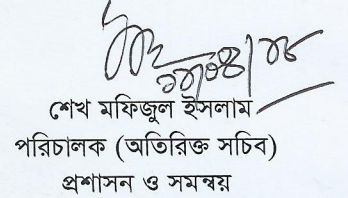 শেখ মফিজুল ইসলাম
পরিচালক (অতিরিক্ত সচিব)
প্রশাসন ও সমন্বয়